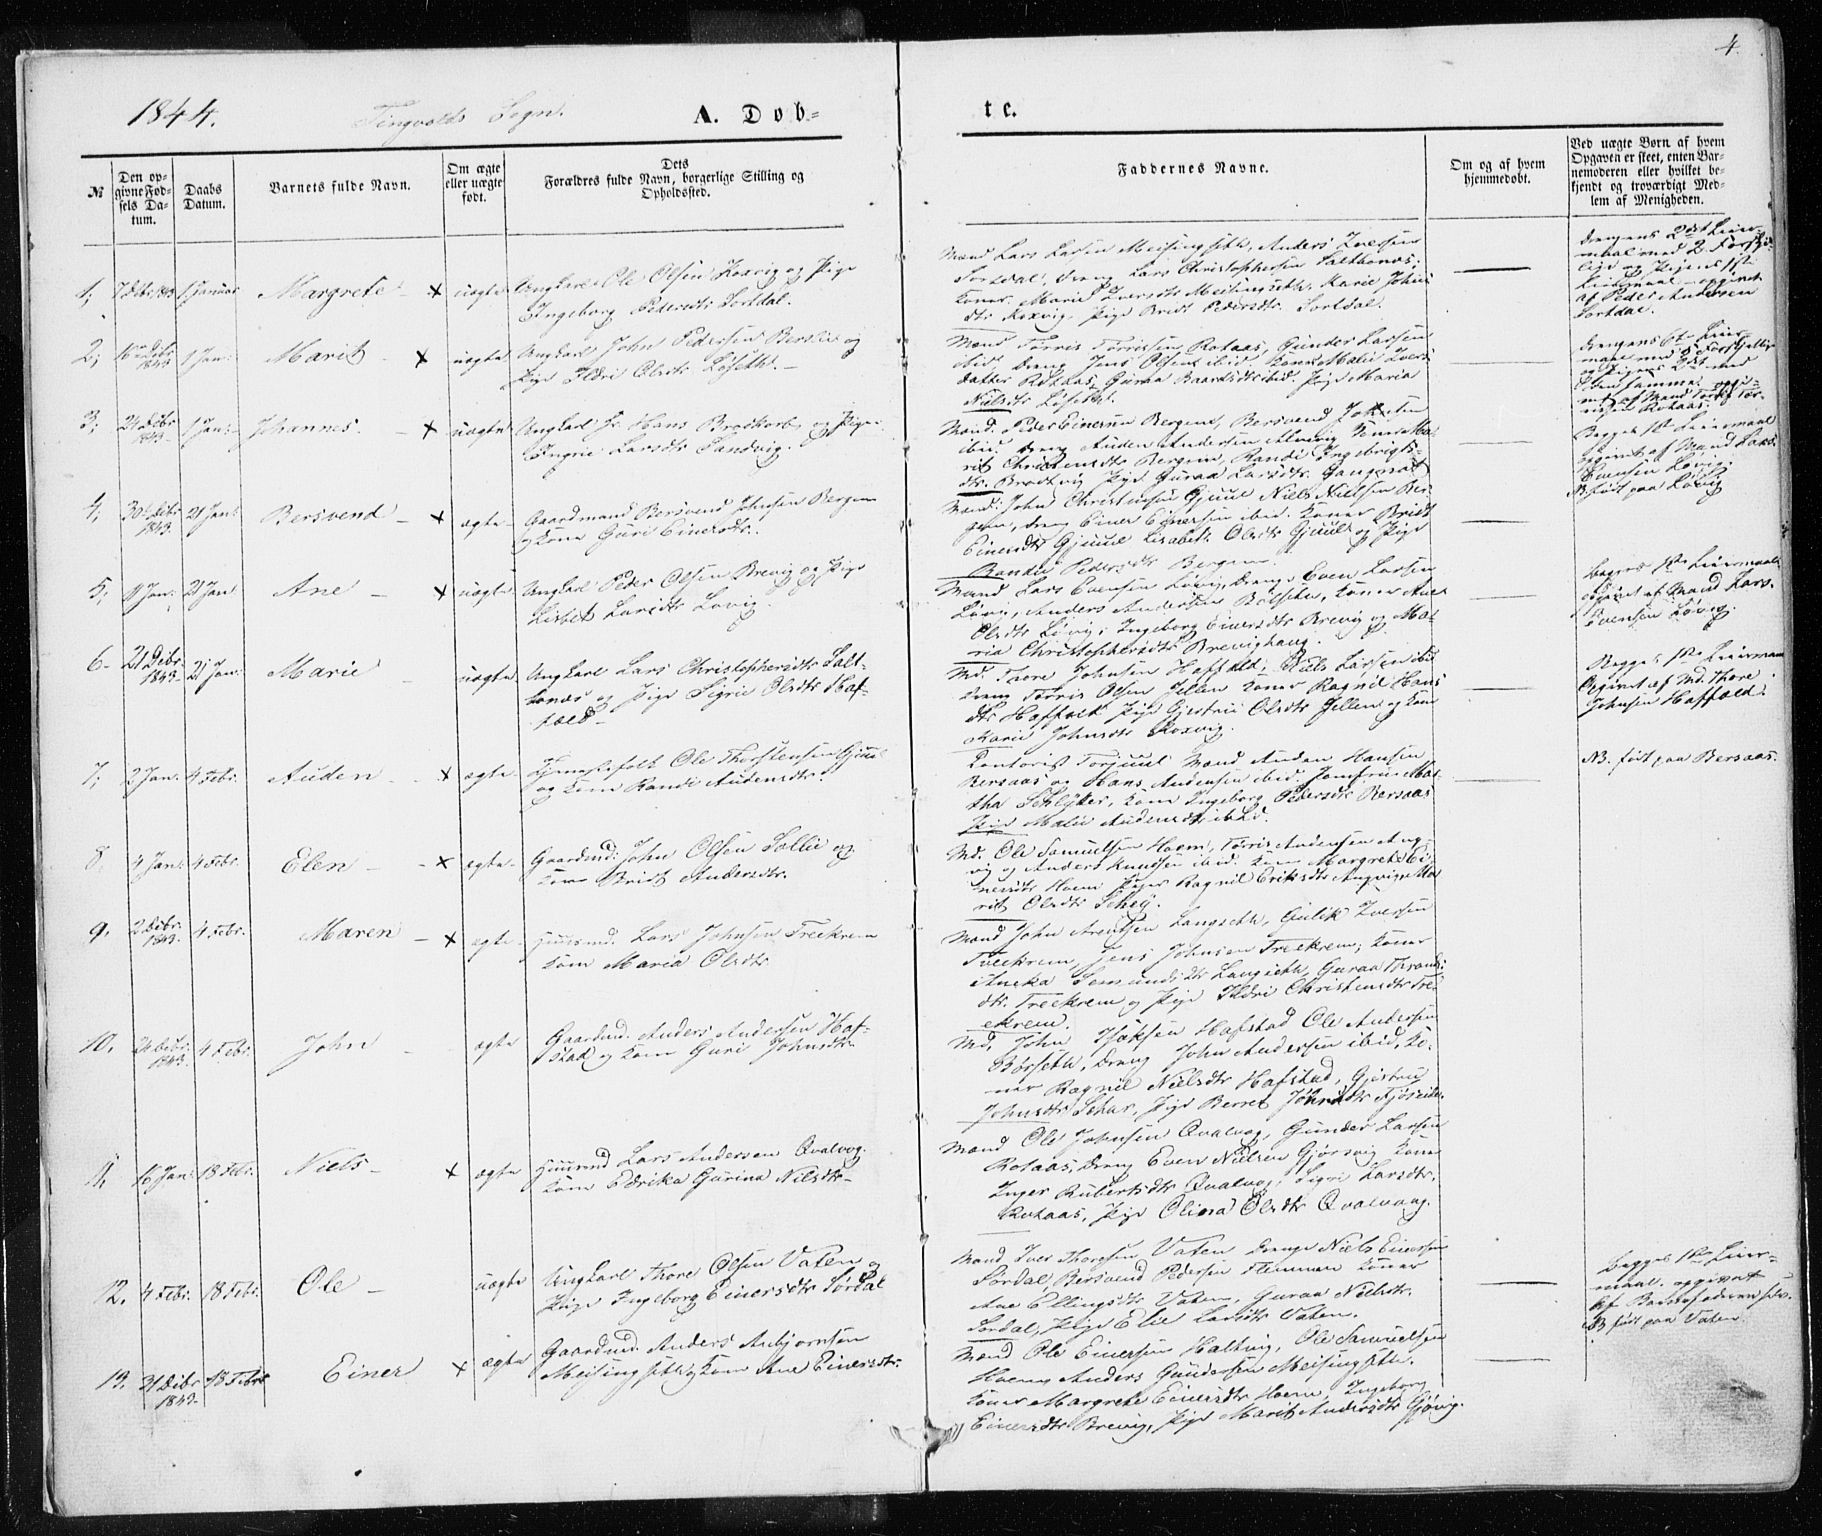 4.
1844. Tingvolds Sogn. A. Dob- te.
№
Den op-
givne Fød-
sels Da-
tum.
Daabs
Datum.
Barnets fulde Navn.
Om ægte
eller uægte
født.
Dets
Forældres fulde Navn, borgerlige Stilling og
Opholdssted.
Faddernes Navne.
Om og af hvem
hjemmedøbt.
Ved uægte Børn af hvem
Opgaven er skeet, enten Bar-
nemoderen eller hvilket be-
kjendt og troværdigt Med-
lem af Menigheden.
1, 7 Debr 1843 1 Januar Margrete - x uægte Ungkarl Ole Olsen Koxvig og Pige
Ingeborg Pedersdtr Sortdal.
Mand Lars Larsen Meisingseth, Anders Iversen
Sortdal, Dreng Lars Christophersen Saltbonæs.
Koner. Marie Iversdtr Meisingseth, Karie Johns
dtr Koxvig Pige Bridt Pedersdtr Sortdal.
Drengens 2det Leier-
maal med 2 Forskjæl-
lige og Pigens 1ste
Leiermaal - opgivet
af Peder Andersen
Sortdal.
2, 1843 1 Jan: Marit - x uægte Ungkarl John Pedersen Berslie og
Pige Ildri Olsdtr Løseth. -
Mand Torris Torrissen Rotaas, Gunder Larssen
ibid, Dreng Jens Olsen ibid. Koner Malie Ivers
datter Rotaas, Guraa Baardsdtr ibid. Pige Maria
Nielsdtr Løseth.
Drengens 6te Leier-
maal med 5 Forskjellige
og Pigens 2det med
den samme. opgi-
vet af Mand Torris Tor-
rissen Rotaas.
3, 21 Debr 1843 1 Jan: Johannes. - x uægte Ungkarl Hans Brodkorb og Pige
Ingrie Larsdtr Sandvig.
Mand: Peder Einersen Bergem, Bersvend Johnsen
ibid. Dreng Auden Andersen Alvvig Koner Ma-
rit Christensdtr Bergem, Randi Ingebrigts-
dtr. Brodtvig Pige Guraa Larsdtr Gangnat
Begges 1ste Leiermaal
opgivet af Mand Lars
Evensen Løvig.
NB. født paa Løvig
4, 30 Debr 1843. 21 Jan: Bersvend - x ægte Gaardmand Bersvend Johnsen Bergem
og Kone Guri Einersdtr.
Mand: John Christensen Gjuul Niels Nielsen Ber-
gem, Dreng Einer Einersen ibid. Koner Bridt
Einersdtr Gjuul Lisabeth Olsdtr Gjuul og Pige
Randi Pedersdtr Bergem.
5, 9 Jan: 21 Jan Ane - x uægte Ungkarl Peder Olsen Brevig og Pige
Lisbet Larsdtr Løvig.
Mand Lars Evensen Løvig, Dreng Even Larsen
Løvig, Anders Andersen Bølseth, Koner Ane
Olsdtr Løvig, Ingeborg Einersdtr Brevig og Ma-
ria Christophersdtr Brevighaug.
Begges 1ste Leiermaal
opgivet af Mand Lars
Evensen Løvig.
6 - 21 Debr. 1843 - 21 Jan: Marie x uægte Ungkarl Lars Christophersdtr Salt-
bonæs og Pige Sigrie Olsdtr Haf-
fæld -
Md. Tore Johnsen Haffæld, Niels Larsen ibid
Dreng Torris Olsen Jellen Koner Ragnil Hans
dtr Haffæld Pige Gjertrui Olsdtr Jellen og Kone
Karie Johnsdtr Koxvig.
Begges 1ste Leiermaal
Opgivet af Md. Thore
Johnsen Haffæld.
7, 2 Jan. 4 Febr. Auden - x ægte Huusmand Ole Thorstensen Gjuul
og Kone Randi Audensdtr
Mand Auden Hansen
Bersaas og Hans Audensen ibid. Jomfrue Mar-
tha Schlytter, Kone Ingeborg Pedersdtr Bersaas
Pige Malie Audensdtr ibid.
NB. født paa Bersaas.
8. 4 Jan: 4 Febr. Elen - x ægte - Gaardmd. John Olsen Sollie og
Kone Bridt Andersdtr.
Md. Ole Samuelsen Hoem, Torris Andersen Ang-
vig og Anders Knudsen ibid. Kone Margrete Ei-
nersdtr Hoem Piger Ragnil Eriksdtr Angvig Ma-
rit Olsdtr Scheg.
9. 2 Debr. 1843. 4 Febr. Maren - x ægte - Huusmd. Lars Johnsen Treekrem
Kone Maria Olsdtr
Mand John Arentsen Langseth, Gulik Iversen
Treekrem, Jens Johnsen Treekrem; Koner
Aneka Semundsdtr Langseth, Guraa Thronds
dtr. Treekrem og Pige Ildri Christensdtr Tre-
ekrem.
10. 24 Debr. 1843. 4 Febr. John - ægte Gaardmd. Anders Andersen Haf-
stad og Kone Guri Johnsdtr
Md. John Isaksen Hafstad Ole Andersen
Børseth, Dreng John Andersen ibid, Ko-
ner Ragnil Nielsdtr Hafstad, Gjertrui
Johnsdtr Schar, Pige Berret Johnsdtr Fjøseide.
11, 16 Jan: 18 Febr. Niels - x ægte Huusmd Lars Andersen Qvalvog.
Kone Edrika Gurina Nilsdtr -
Mand Ole Johnsen Qvalvog, Gunder Larsen
Rotaas, Dreng Even Nielsen Gjørsvig Koner
Inger Rubertsdtr Qvalvog, Sigri Larsdtr.
Rotaas, Pige Olina Olsdtr Qvalvaag.
12. 4 Febr. 18 Febr. Ole - uægte Ungkarl Thore Olsen Vaten og
Pige Ingeborg Einersdtr Sørdal
Mand Iver Thoresen Vaten Drenge Niels Einersen
Sørdal, Bersvend Pedersen Flemmen Koner
Ane Ellingsdtr Vaten, Guraa Nielsdtr.
Sørdal, Pige Elie Larsdtr Vaten.
Begges 1ste Leier-
maal. opgivet
af Barnefaderen selv.
NB født paa Vaten.
13. 31 Debr 1843. 18 Febr Einer x ægte Gaardmd. Anders Asbjørnsen
Meisingseth og Kone Ane Einersdtr.
Mand Ole Einersen Haltvig, Ole Samuelsen
Hoem, Anders Gundersen Meisingseth.
Koner Margrete Einersdtr Hoem, Ingeborg
Einersdtr Brevig, Pige Marit Andersdtr Gjøvig.